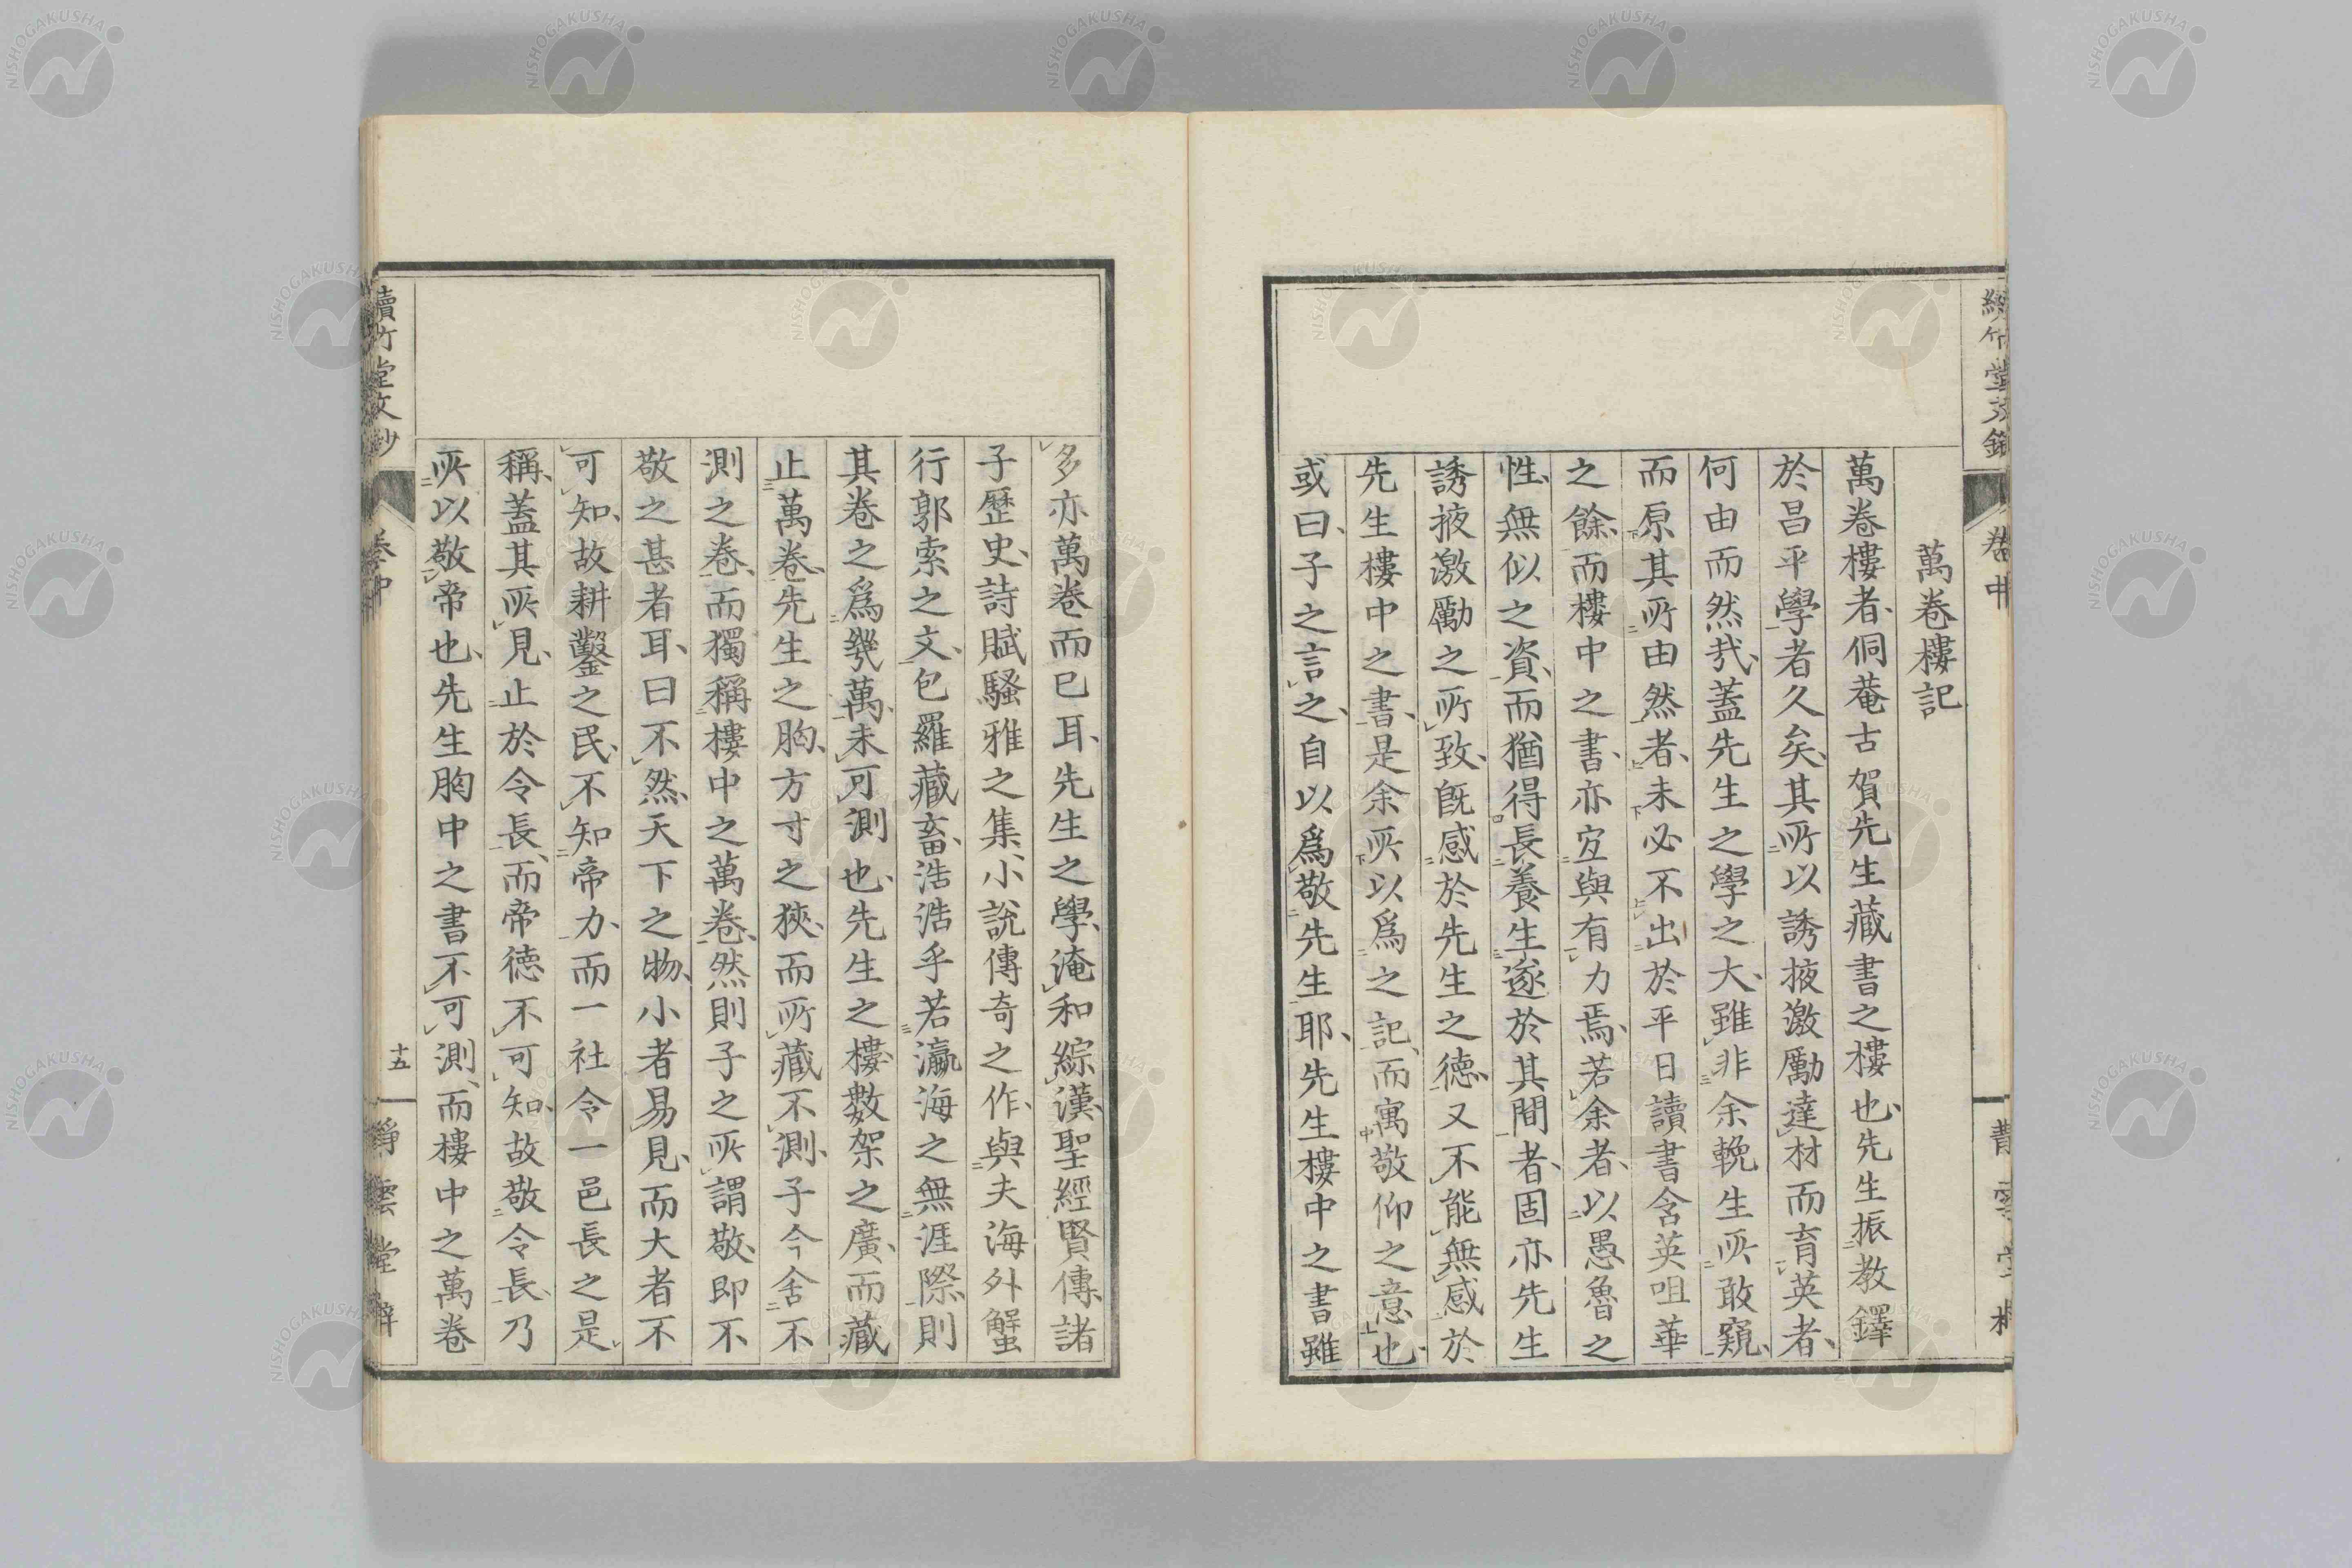 萬卷樓記
萬卷樓者、侗菴古賀先生藏書之樓也、先生振教鐸
於昌平學者久矣、其所以誘掖激勵達材而育英者、
何由而然哉、蓋先生之學之大、雖非余輓生所敢窺、
而原其所由然者、未必不出於平日讀書含英咀華
之餘、而樓中之書、亦宜與有力焉、若余者、以愚魯之
性、無似之資、而猶得長養生遂於其間者、固亦先生
誘掖激勵之所致、既感於先生之德、又不能無感於
先生樓中之書、是余所以爲之記、而寓敬仰之意也、
或曰、子之言之、自以爲敬先生耶、先生樓中之書雖
多亦萬卷而已耳、先生之學、淹和綜漢、聖經賢傳、諸
子歷史、詩賦騷雅之集、小說傳奇之作、與夫海外蟹
行郭索之文、包羅藏畜、浩浩乎若瀛海之無涯際、則
其卷之爲幾萬、未可測也、先生之樓、數架之廣、而藏
止萬卷、先生之胸、方寸之狹、而所藏不測、子今舍不
測之卷、而獨稱樓中之萬卷、然則子之所謂敬、即不
敬之甚者耳、曰不然、天下之物、小者易見、而大者不
可知、故耕鑿之民、不知帝力、而一社令一邑長之是
稱、蓋其所見、止於令長、而帝德不可知、故敬令長、乃
所以敬帝也、先生胸中之書不可測、而樓中之萬卷
讀竹堂文鈔
卷中
十五
靜雲堂梓
NISHOGAKUSHA